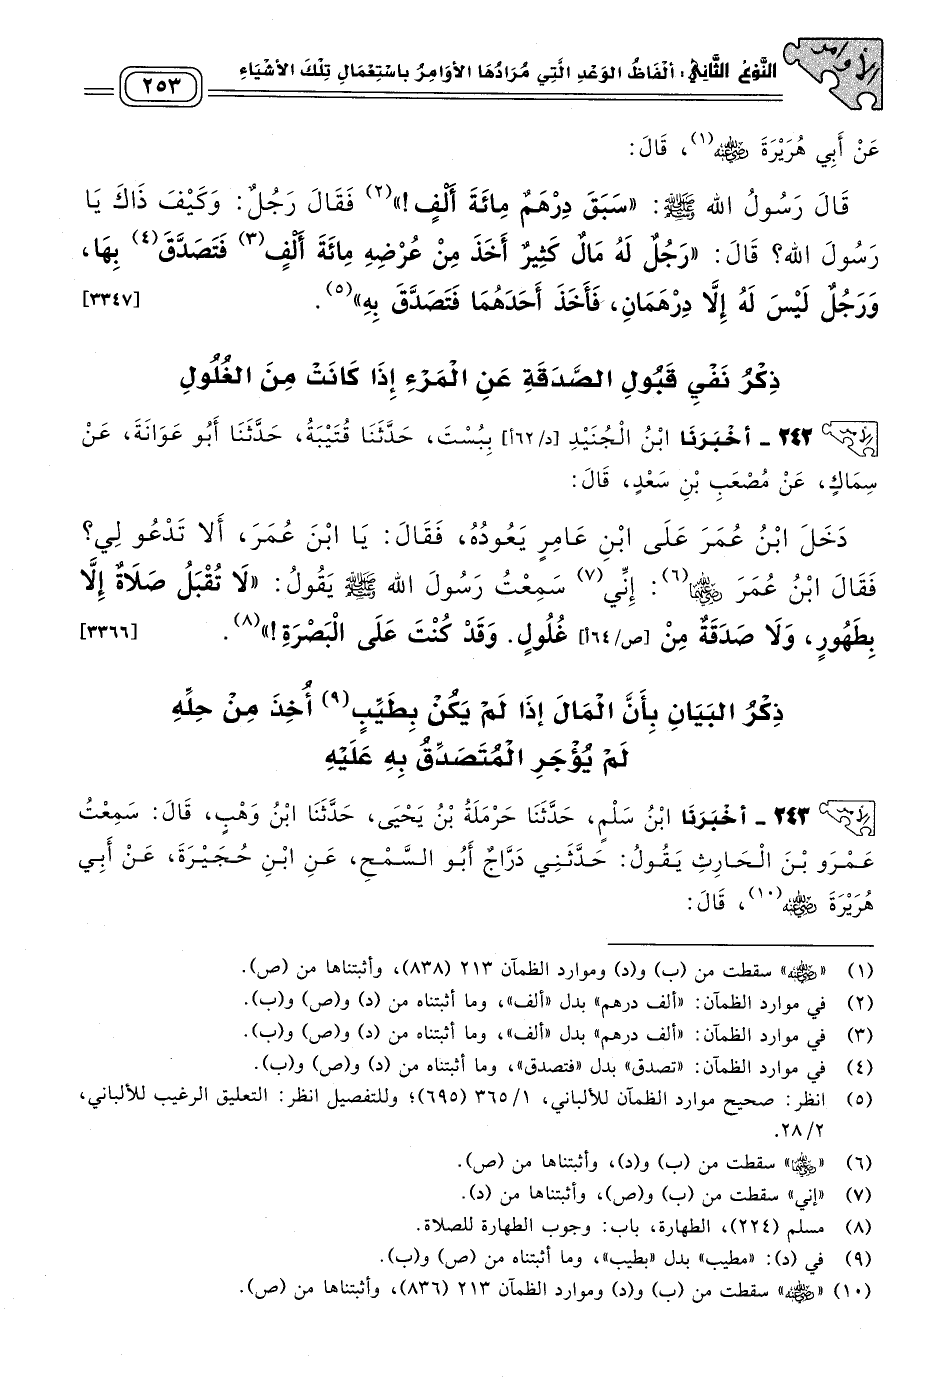 الأوامر
النَّوْعُ الثَّانِي: أَلْفَاظُ الوَعْدِ الَّتِي مُرَادُهَا الأَوَامِرُ بِاسْتِعْمَالِ تِلْكَ الأَشْيَاءِ
٢٥٣
عَنْ أَبِي هُرَيْرَةَ رضي الله عنه(١)، قَالَ:
قَالَ رَسُولُ الله ﷺ: «سَبَقَ دِرْهَمٌ مِائَةَ أَلْفٍ!»(٢) فَقَالَ رَجُلٌ: وَكَيْفَ ذَاكَ يَا
رَسُولَ الله؟ قَالَ: «رَجُلٌ لَهُ مَالٌ كَثِيرٌ أَخَذَ مِنْ عُرْضِهِ مِائَةَ أَلْفٍ(٣) فَتَصَدَّقَ(٤) بِهَا،
وَرَجُلٌ لَيْسَ لَهُ إِلَّا دِرْهَمَانِ، فَأَخَذَ أَحَدَهُمَا فَتَصَدَّقَ بِهِ»(٥). [٣٣٤٧]
ذِكْرُ نَفْيِ قَبُولِ الصَّدَقَةِ عَنِ الْمَرْءِ إِذَا كَانَتْ مِنَ الغُلُولِ
٢٤٢ - أَخْبَرَنَا ابْنُ الْجُنَيْدِ [د/٦٢أ] بِبُسْتَ، حَدَّثَنَا قُتَيْبَةُ، حَدَّثَنَا أَبُو عَوَانَةَ، عَنْ
سِمَاكٍ، عَنْ مُصْعَبِ بْنِ سَعْدٍ، قَالَ:
دَخَلَ ابْنُ عُمَرَ عَلَى ابْنِ عَامِرٍ يَعُودُهُ، فَقَالَ: يَا ابْنَ عُمَرَ، أَلَا تَدْعُو لِي؟
فَقَالَ ابْنُ عُمَرَ رضي الله عنهما(٦): إِنِّي(٧) سَمِعْتُ رَسُولَ الله ﷺ يَقُولُ: «لَا تُقْبَلُ صَلَاةٌ إِلَّا
بِطَهُورٍ، وَلَا صَدَقَةٌ مِنْ [ص/٦٤أ] غُلُولٍ. وَقَدْ كُنْتَ عَلَى الْبَصْرَةِ!»(٨). [٣٣٦٦]
ذِكْرُ البَيَانِ بِأَنَّ الْمَالَ إِذَا لَمْ يَكُنْ بِطَيِّبٍ(٩) أُخِذَ مِنْ حِلِّهِ
لَمْ يُؤْجَرِ الْمُتَصَدِّقُ بِهِ عَلَيْهِ
٢٤٣ - أَخْبَرَنَا ابْنُ سَلْمٍ، حَدَّثَنَا حَرْمَلَةُ بْنُ يَحْيَى، حَدَّثَنَا ابْنُ وَهْبٍ، قَالَ: سَمِعْتُ
عَمْرَو بْنَ الْحَارِثِ يَقُولُ: حَدَّثَنِي دَرَّاجٌ أَبُو السَّمْحِ، عَنِ ابْنِ حُجَيْرَةَ، عَنْ أَبِي
هُرَيْرَةَ رضي الله عنه(١٠)، قَالَ:
(١) «رضي الله عنه» سقطت من (ب) و(د) وموارد الظمآن ٢١٣ (٨٣٨)، وأثبتناها من (ص).
(٢) في موارد الظمآن: «ألف درهم» بدل «ألف»، وما أثبتناه من (د) و(ص) و(ب).
(٣) في موارد الظمآن: «ألف درهم» بدل «ألف»، وما أثبتناه من (د) و(ص) و(ب).
(٤) في موارد الظمآن: «تصدق» بدل «فتصدق»، وما أثبتناه من (د) و(ص) و(ب).
(٥) انظر: صحيح موارد الظمآن للألباني، ٣٦٥/١ (٦٩٥)؛ وللتفصيل انظر: التعليق الرغيب للألباني،
٢٨/٢.
(٦) «رضي الله عنهما» سقطت من (ب) و(د)، وأثبتناها من (ص).
(٧) «إني» سقطت من (ب) و(ص)، وأثبتناها من (د).
(٨) مسلم (٢٢٤)، الطهارة، باب: وجوب الطهارة للصلاة.
(٩) في (د): «مطيب» بدل «بطيب»، وما أثبتناه من (ص) و(ب).
(١٠) «رضي الله عنه» سقطت من (ب) و(د) وموارد الظمآن ٢١٣ (٨٣٦)، وأثبتناها من (ص).